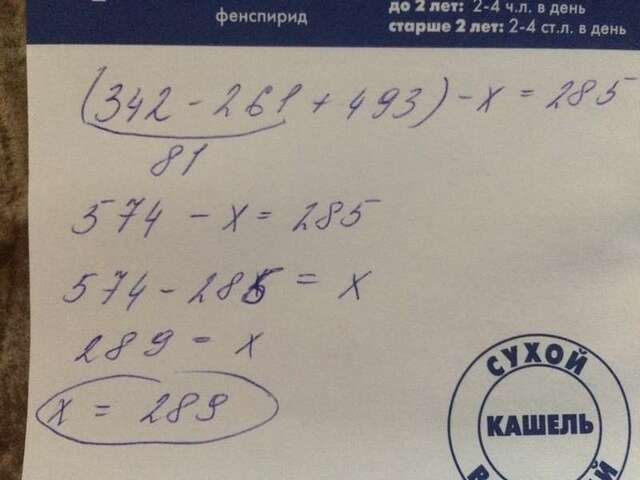 фенспирид
до 2 лет: 2-4 ч.л. в день
старше 2 лет: 2-4 ст.л. в день
(342 - 261 + 493) - x = 285
81
574 - x = 285
574 - 285 = x
289 = x
x = 289
СУХОЙ
КАШЕЛЬ